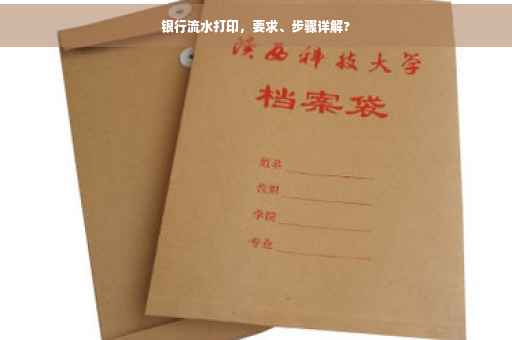 银行流水打印，要求、步骤详解？
陕西科技大学
档案袋
姓名
学院
专业